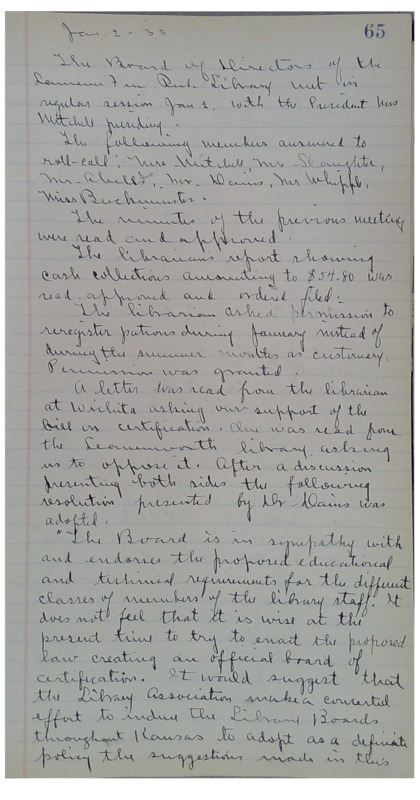 Jan. 2 - 35
65
The Board of Directors of the
Lawrence Free Pub. Library met in
regular session Jan 2. with the President Mrs
Mitchell presiding.
The following members answered to
roll-call; Mrs. Mitchell, Mr. Slaughter,
Mr. Dains, Mr Whipple,
Miss Buchmister.
The minutes of the previous meeting
were read and approved.
The librarians report showing
cash collections amounting to $54.80 was
read, approved and ordered filed:
The librarian asked permission to
reregister patrons during January instead of
during the summer months as customary.
Permission was granted.
A letter was read from the librarian
at Wichita asking our support of the
bill on certification. One was read from
the Leavenworth library asking
us to oppose it. After a discussion
presenting both sides the following
resolution presented by Dr. Dains was
adopted.
"The Board is in sympathy with
and endorses the proposed educational
and technical requirements for the different
classes of members of the library staff. It
does not feel that it is wise at the
present time to try to enact the proposed
law creating an official board of
certification. It would suggest that
the Library Association make a concerted
effort to induce the Library Boards
throughout Kansas to adopt as a definite
policy the suggestions made in this